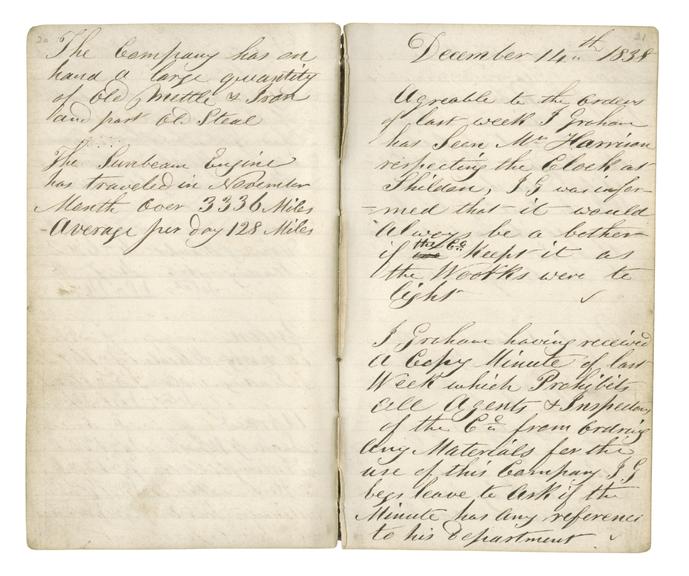 20
The Company has on
hand a large quantity
of Old Mettle & Iron
and part Old Steal
The Sunbeam Engine
has traveled in November
Month over 3336 Miles
-Average per day 128 Miles
21
December 14th 1838
Agreable to the Orders
of last week J Graham
has Seen Mr Harrison
respecting the Clock at
Shildon, J G was infor-
-med that it would
Always be a bother
if the Co Keept it as
the Woorks were to
light
J Graham having received
a Copy Minute of last
Week which Prohibits
all Agents & Inspectors
of the Co from Ordring
Any Materials for the
use of this Company J G
begs leave to Ask if the
Minute has Any reference
to his department